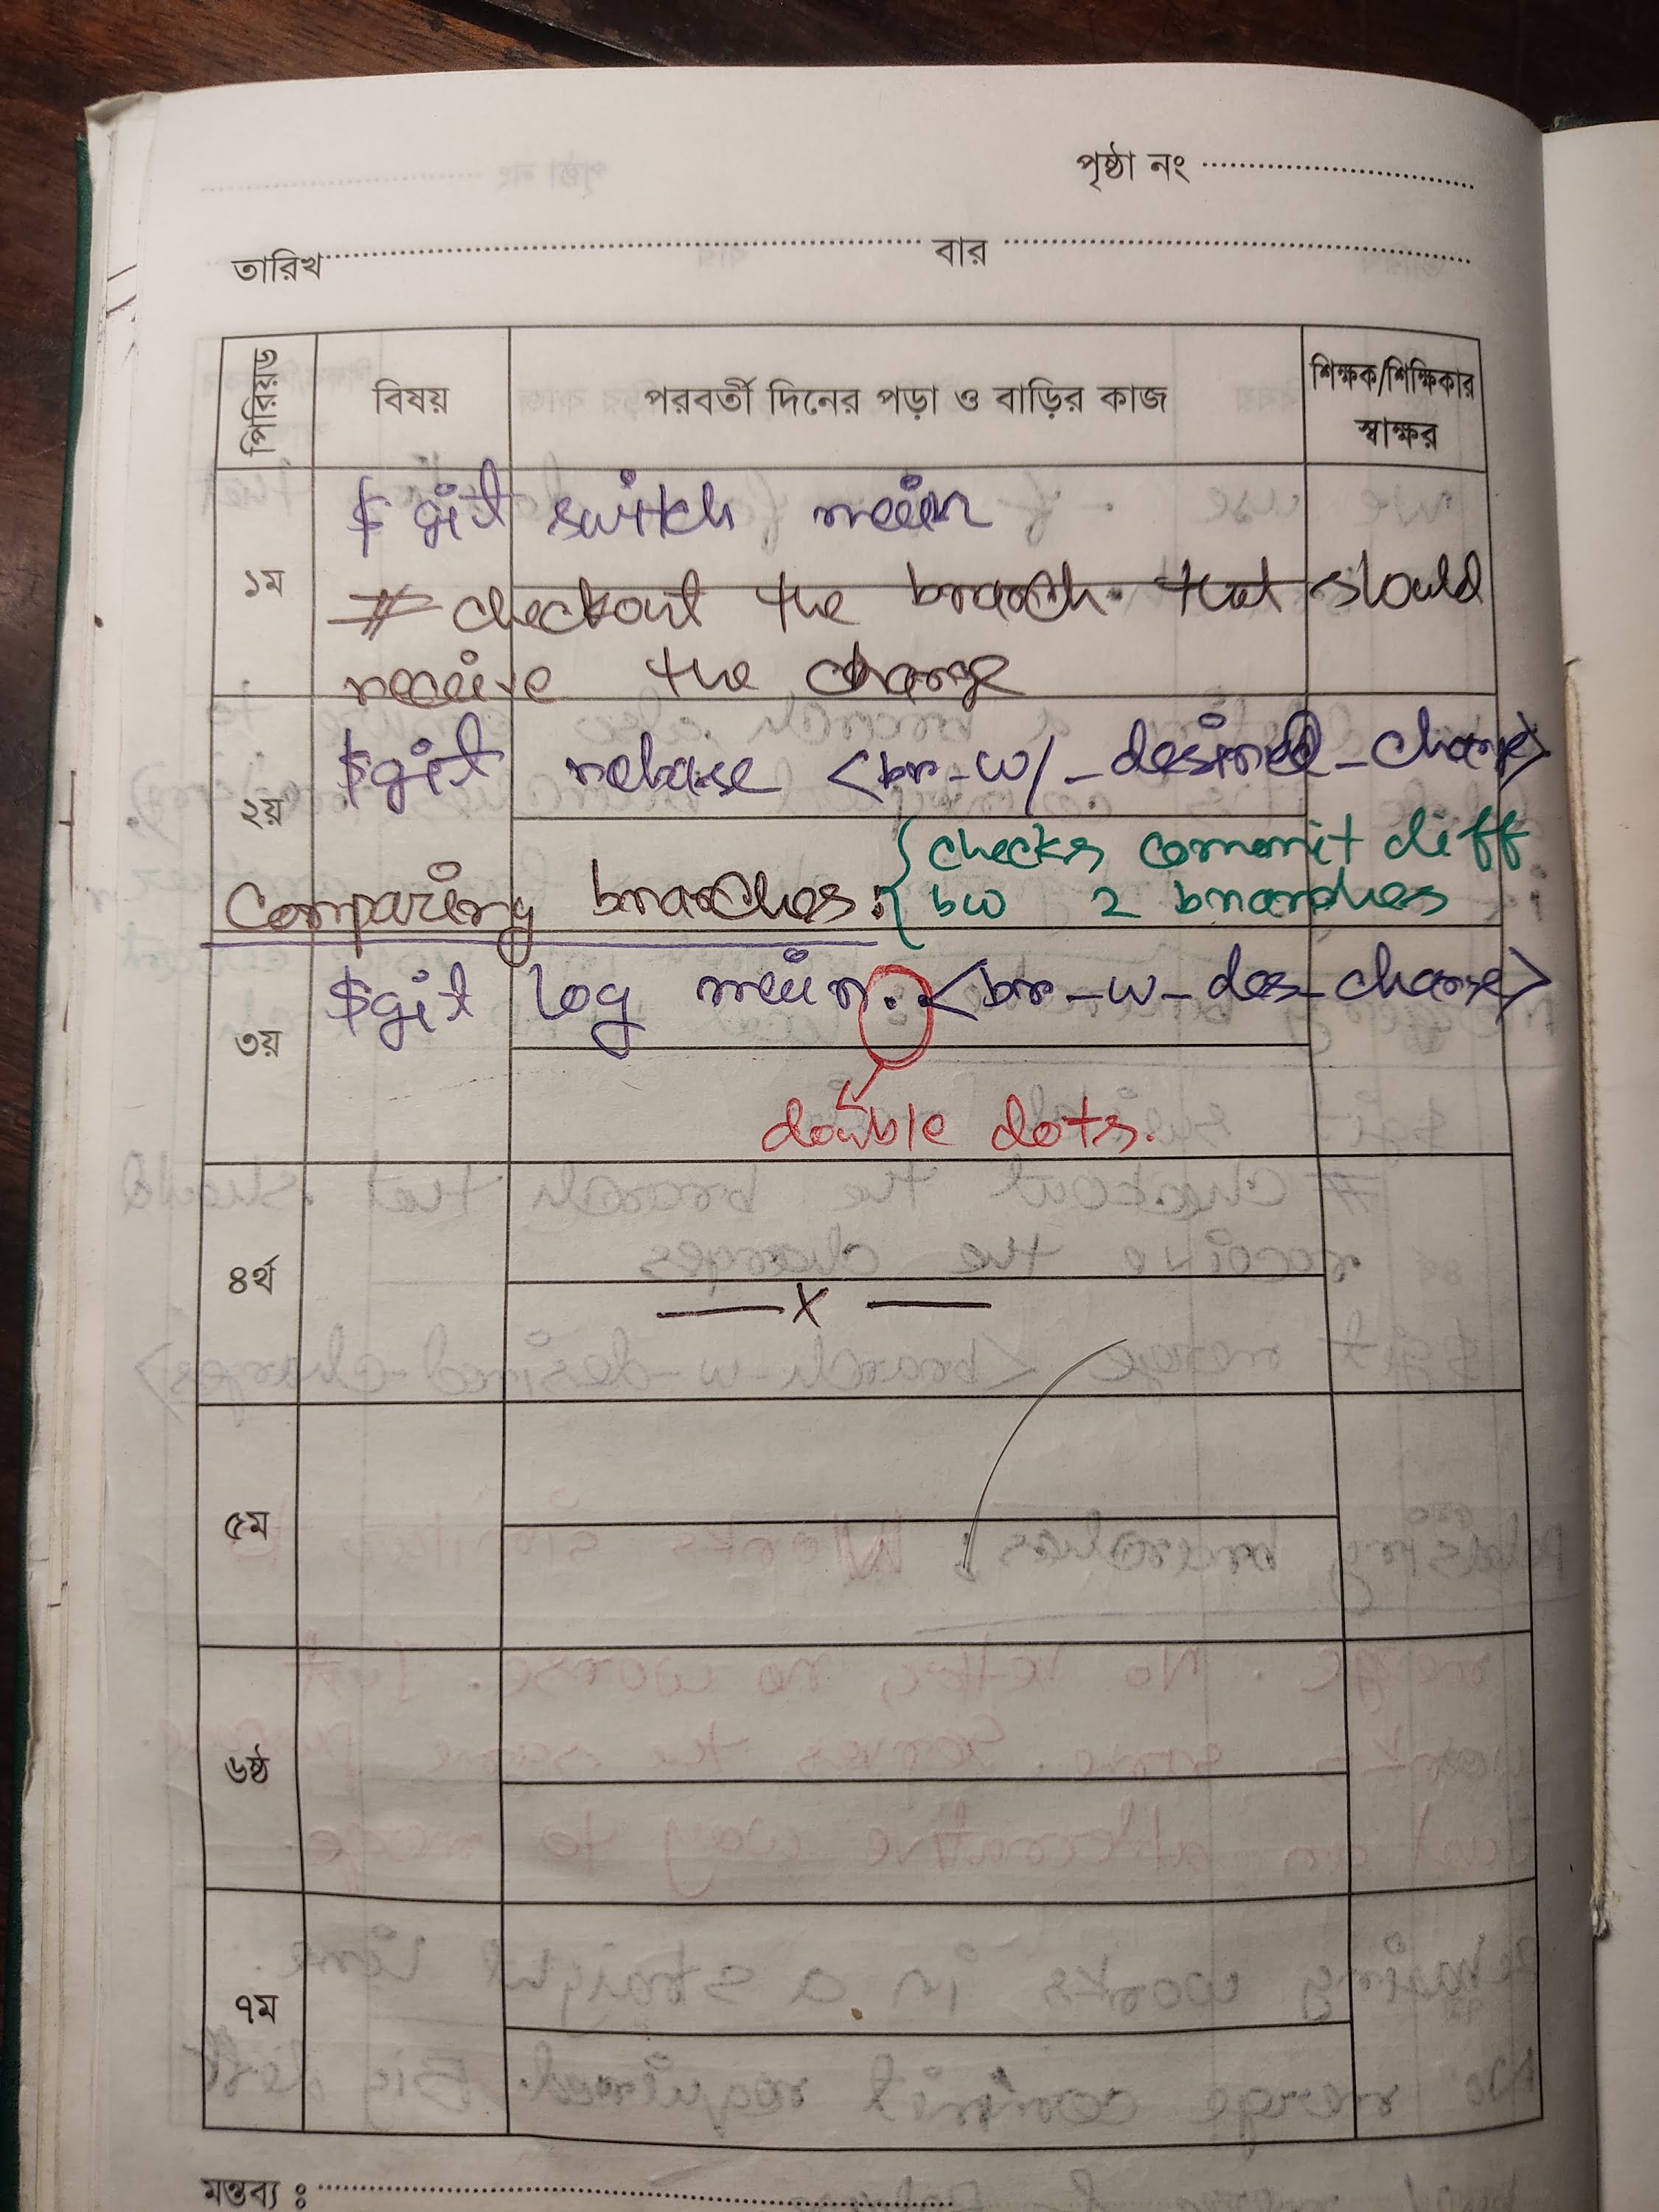 পৃষ্ঠা নং
তারিখ বার
পিরিয়ড বিষয় পরবর্তী দিনের পড়া ও বাড়ির কাজ শিক্ষক/শিক্ষিকার স্বাক্ষর
$ git switch main
১ম
# checkout the branch that should
receive the change
$git rebase <br-w/-desired-change>
২য়
Comparing branches: { checks commit diff
bw 2 branches
$git log main..<br-w-des-change>
৩য়
double dots.
৪র্থ
—x—
৫ম
৬ষ্ঠ
৭ম
মন্তব্য ঃ